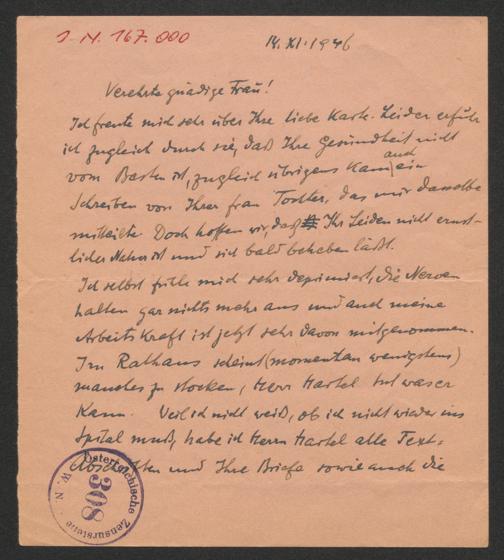 J. N. 167.000
14. XI. 1946
Verehrte gnädige Frau!
Ich freute mich sehr über Ihre liebe Karte. Leider erfuhr
ich zugleich durch sie, daß Ihre Gesundheit nicht
vom Besten ist, zugleich übrigens kam auch ein
Schreiben von Ihrer Frau Tochter, das mir dasselbe
mitteilte. Doch hoffen wir, daß Ihr Leiden nicht ernst-
licher Natur ist und sich bald beheben läßt.
Ich selbst fühle mich sehr deprimiert, die Nerven
halten gar nichts mehr aus und auch meine
Arbeitskraft ist jetzt sehr davon mitgenommen.
Im Rathaus scheint (momentan wenigstens)
manches zu stocken, Herr Hartel tut was er
kann. Weil ich nicht weiß, ob ich nicht wieder ins
Spital muß, habe ich Herrn Hartel alle Text-
Abschriften und Ihre Briefe sowie auch die
Österreichische Zensurstelle W. N.
308